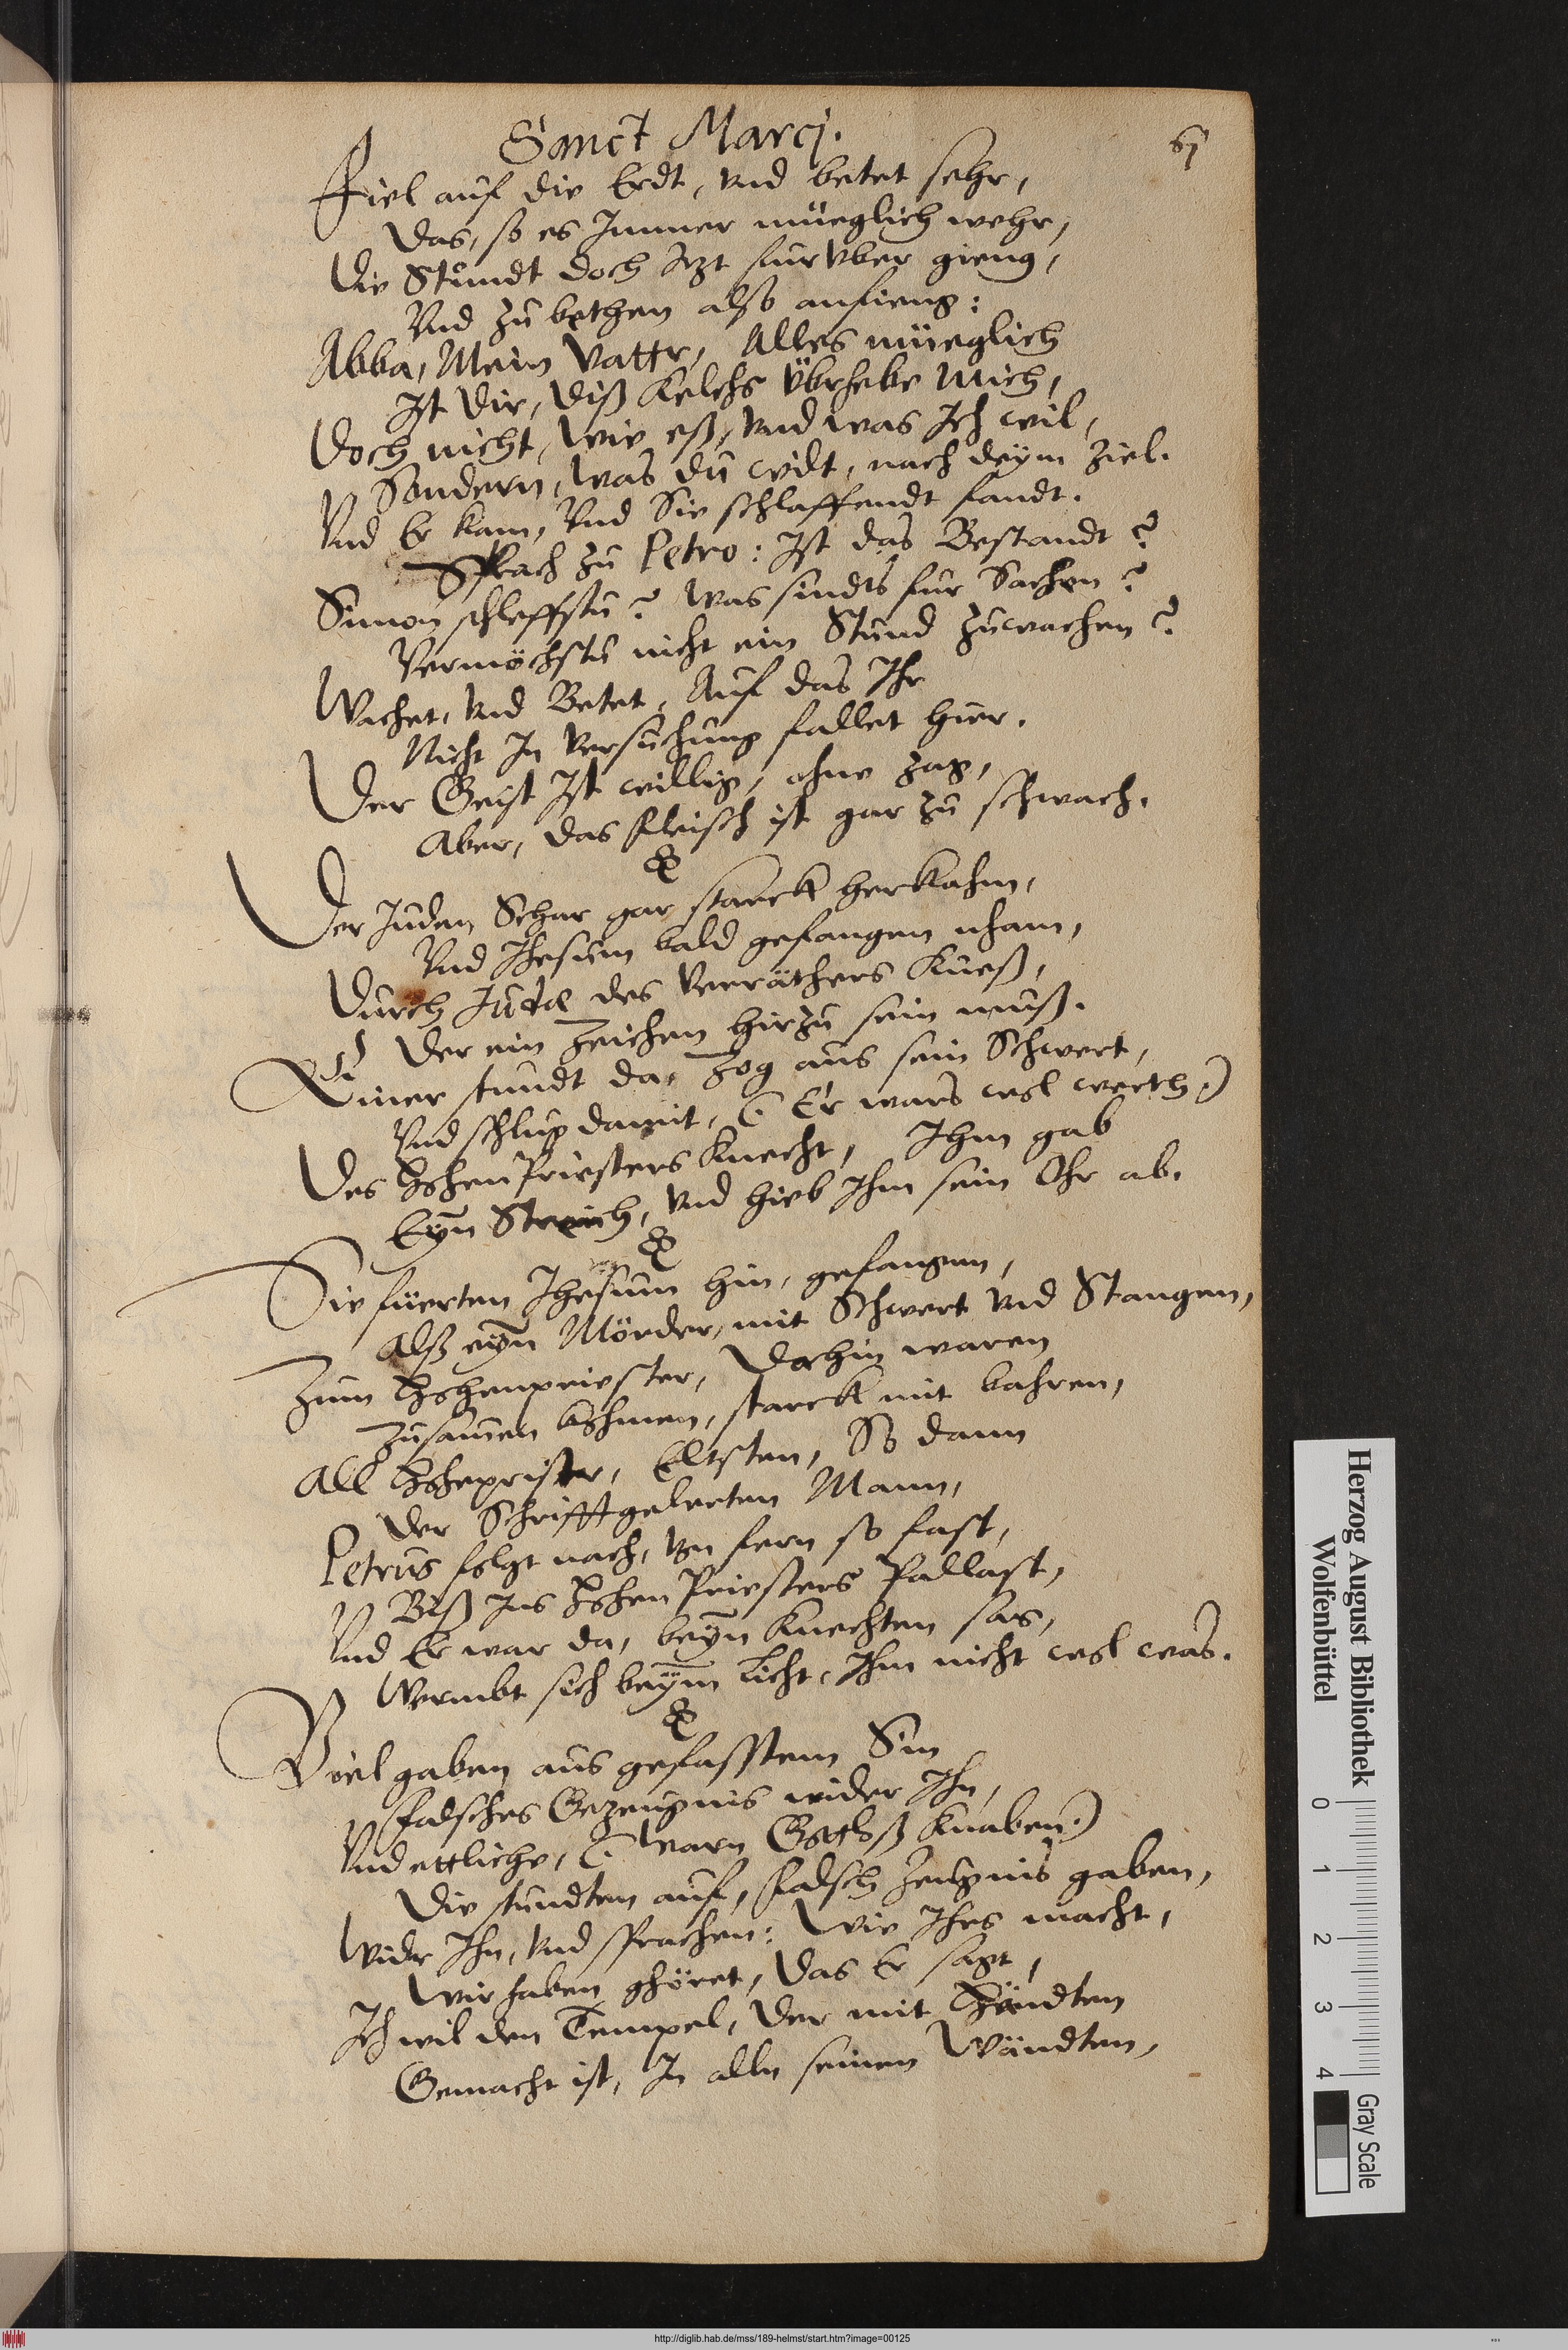 Sanct Marcj.
61
Fiel auf die Erdt, vnd betet sehr,
Das, so es Immer müeglich wehr,
Die Stundt doch Itzt furvber gieng,
Vnd zu bethen also anfieng:
Abba, Mein Vattr, Alles müeglich
Ist dir, diß Kelchs übrhebe Mich,
Doch nicht, wie eß, vnd was Ich wil,
Sondern, was du wilt, nach deym Ziel.
Vnd Er kam, Vnd Sie schlaffendt fandt.
Sprach zu Petro: Ist das Bestandt?
Simon schleffstu? was sindts fur Sachen?
Vermöchstu nicht ein Stund zuwachen?
Wachet, vnd Betet, Auf das Ihr
Nicht In versuchung fallet hier.
Der Geist Ist willig, ohne zag,
Aber, das fleisch ist gar zu schwach.
Der Juden Schar gar starck herkahm,
Vnd Jhesum bald gefangen nham,
Durch Judæ des Verräthers Kueß,
Der ein Zeichen hirzu sein muß.
Einer stundt da, Zog aus sein Schwert,
Vnd schlug damit, (: Er wars wol werth:)
Des HohenPriesters Knecht, Ihm gab
Eyn Streich, vnd hieb Ihm sein Ohr ab.
Sie füerten Jhesum hin, gefangen,
Alß eyn Mörder, mit Schwert vnd Stangen,
Zum Hohenpriester, Dahin waren
Zusamen kohmen, starck mit bahren,
All Hohepristr, Eltsten, So dann
Der Schrifftgelerten Mann,
Petrus folgt nach, vn fern so fast,
Biß Ins Hohen Priesters Pallast,
Vnd Er war da, beyn Knechten sas,
Wermbt sich beym licht, Ihm nicht wol was.
Viel gaben aus gefasstem Sin
falsches Gezeugnis wider Ihn,
Vnd ettliche, (: warn Gottloß Knaben:)
Die stundten auf, falsch Zeugnis gaben,
Widr Ihn, vnd sprachen: Wie Ihrs macht,
Wir haben ghöret, Das Er sagt,
Ich wil den Tempel, der mit Händten
Gemacht ist, In alln seinen Wändten,
Herzog August Bibliothek
Wolfenbüttel
0 1 2 3 4
Gray Scale
http://diglib.hab.de/mss/189-helmst/start.htm?image=00125